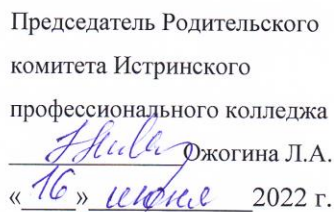 Председатель Родительского
комитета Истринского
профессионального колледжа
Ожогина Л.А.
«16» июня 2022 г.